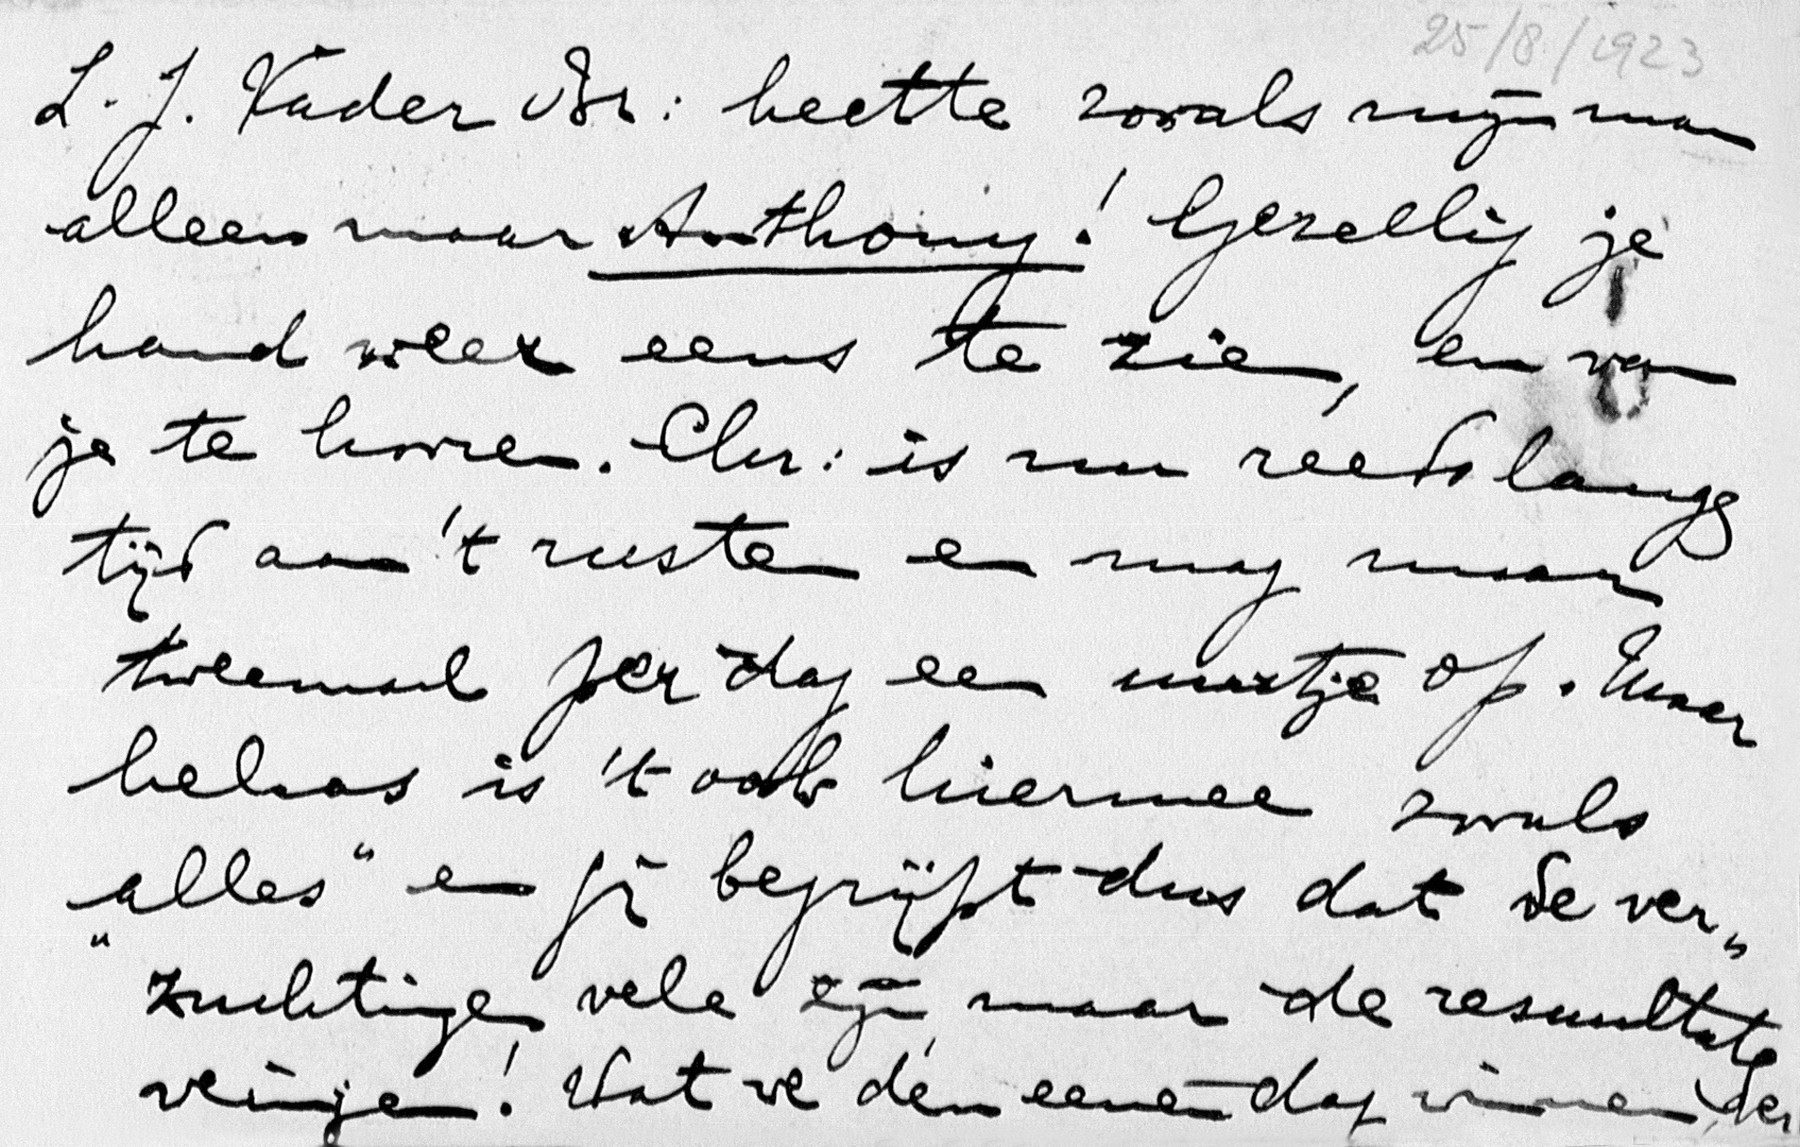 25/8/1923
L. J. Vader Br: heette zooals mijn man
alleen maar Anthony! Gezellig je
hand weer eens te zien, en van
je te hooren. Chr: is nu reeds lange
tijd aan 't rusten en mag maar
tweemaal per dag een uurtje op. Maar
helaas is 't ook hiermee zooals
"alles" en jij begrijpt dus dat de ver„
zuchtingen vele zijn, maar de resultaten
weinige! Wat we den eenen dag winnen, der